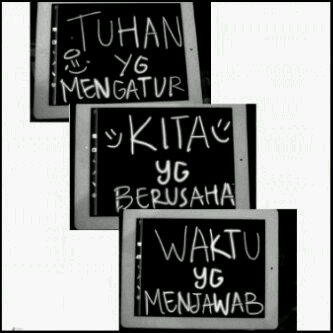 TUHAN
YG
MENGATUR
KITA
YG
BERUSAHA
WAKTU
YG
MENJAWAB